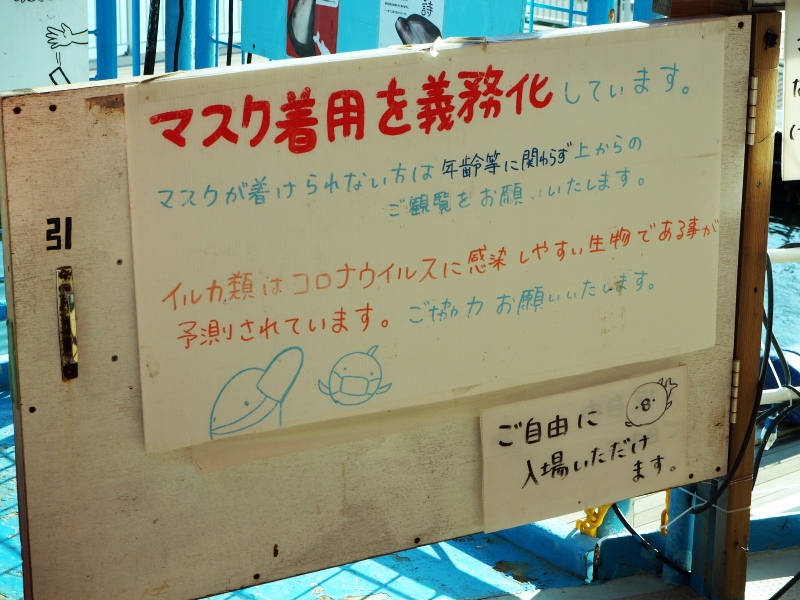 詩
マスク着用を義務化しています。
マスクが着けられない方は年齢等に関わらず上からの
ご観覧をお願いいたします。
引
イルカ類はコロナウイルスに感染しやすい生物である事が
予測されています。ご協力お願いいたします。
ご自由に
入場いただけ
ます。